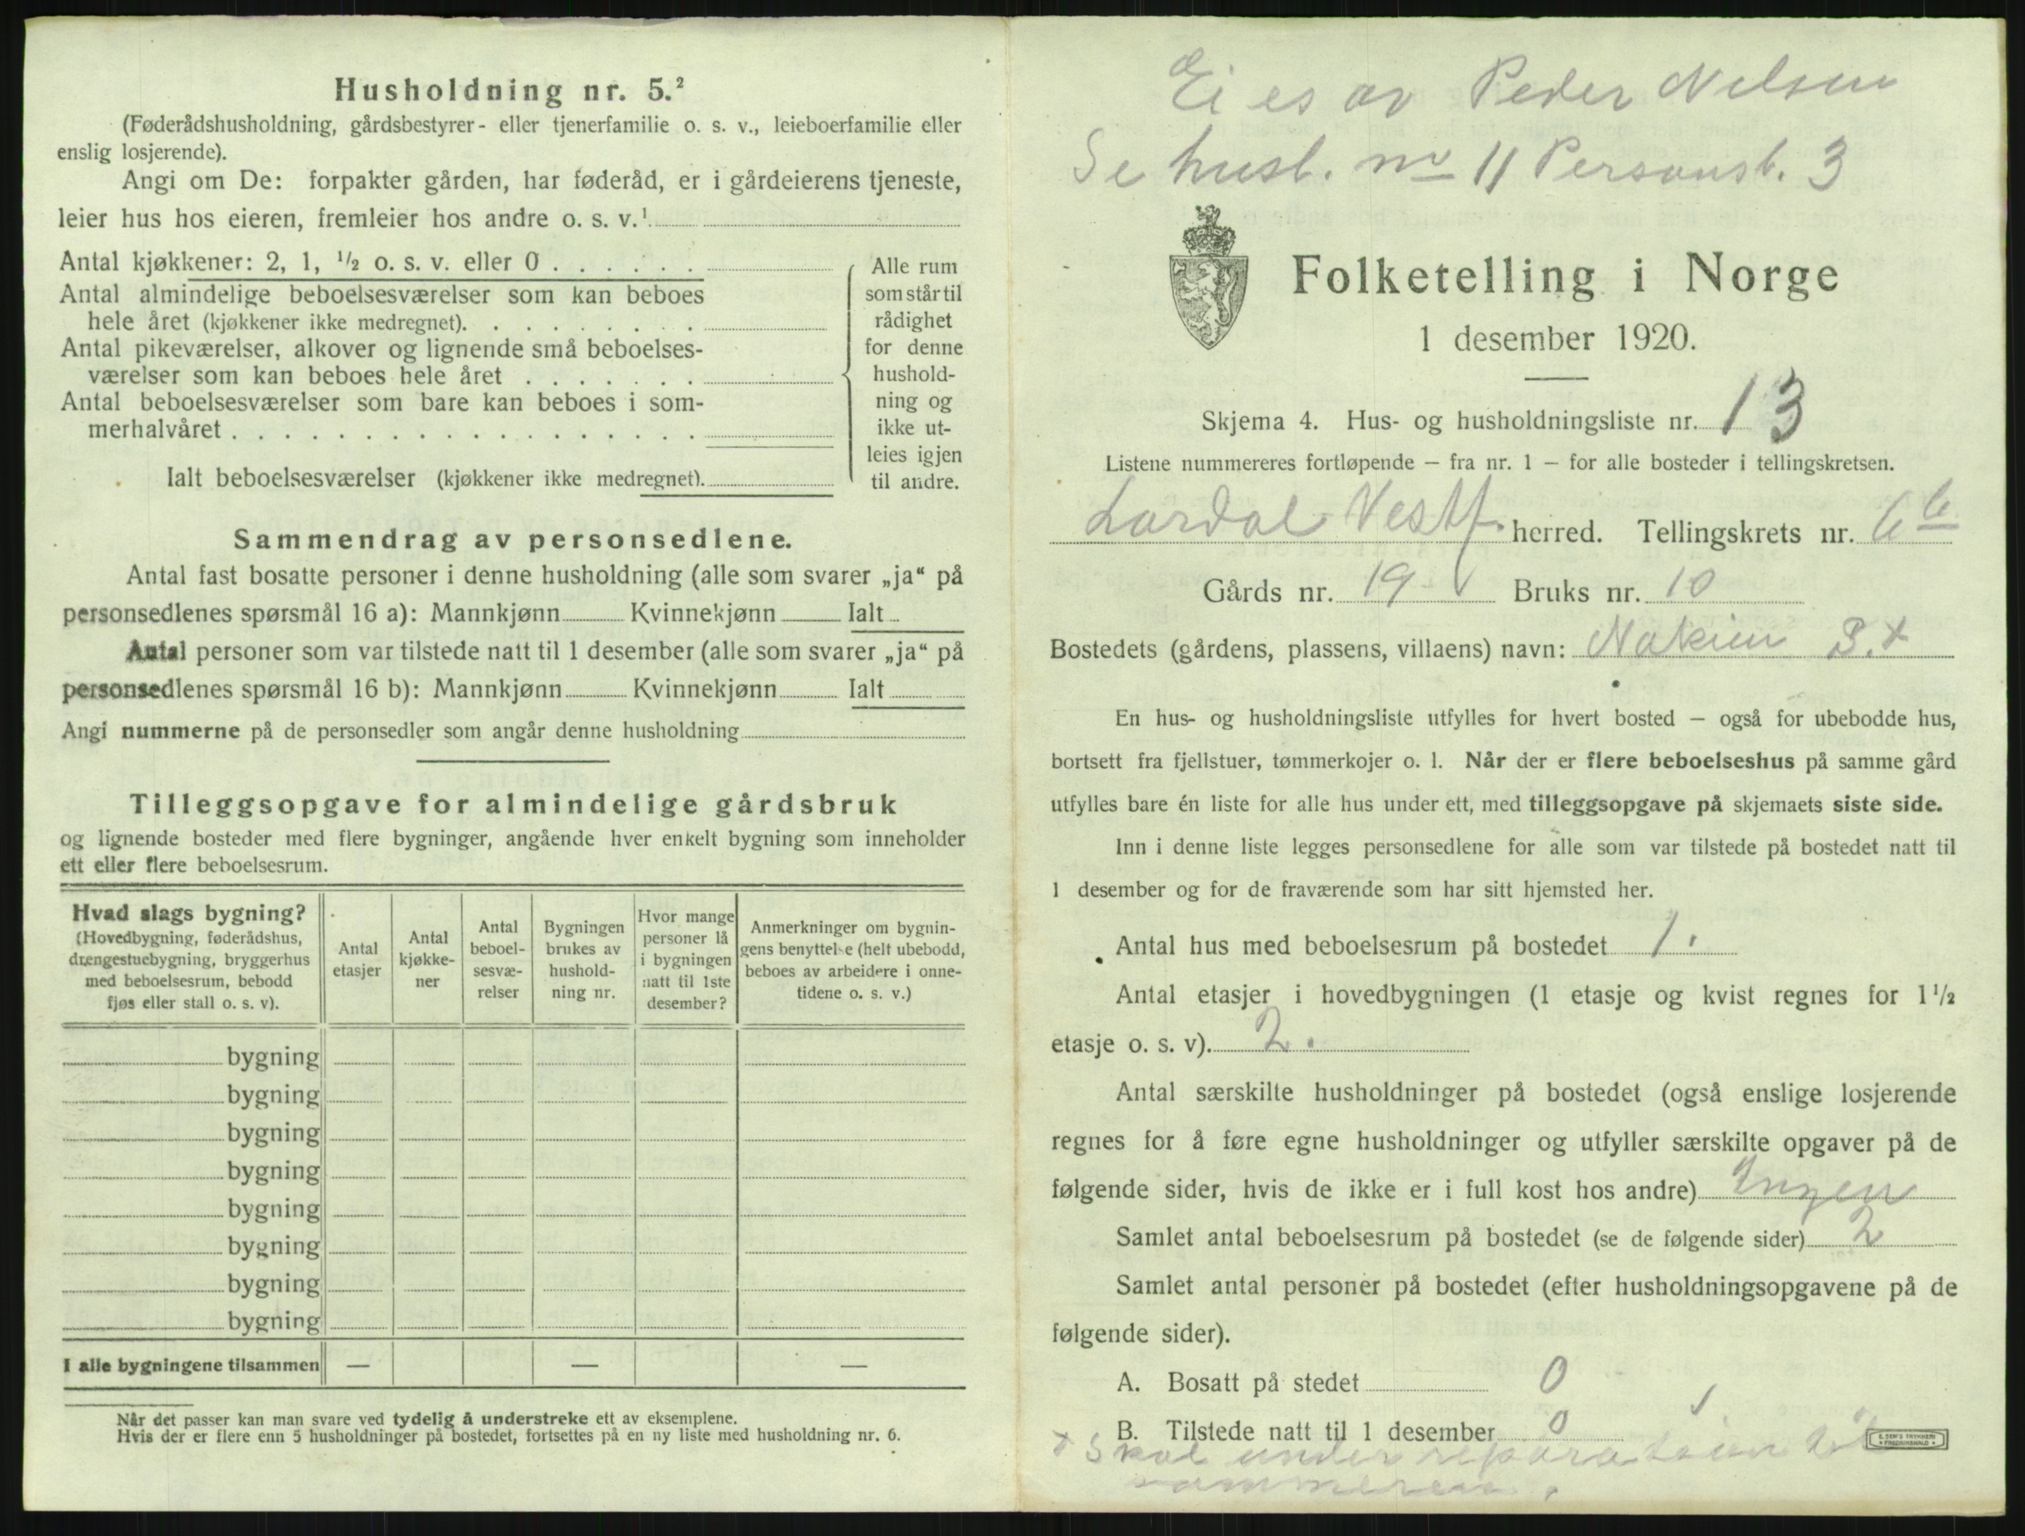 Husholdning nr. 5.²
(Føderådshusholdning, gårdsbestyrer- eller tjenerfamilie o. s. v., leieboerfamilie eller
enslig losjerende).
Angi om De: forpakter gården, har føderåd, er i gårdeierens tjeneste,
leier hus hos eieren, fremleier hos andre o. s. v.¹
Antal kjøkkener: 2, 1, ½ o. s. v. eller 0 . . . . . .
Antal almindelige beboelsesværelser som kan beboes
hele året (kjøkkener ikke medregnet). . . . . . . . .
Antal pikeværelser, alkover og lignende små beboelses-
værelser som kan beboes hele året . . . . . . .
Antal beboelsesværelser som bare kan beboes i som-
merhalvåret . . . . . . . . . . . . . . . . . .
Ialt beboelsesværelser (kjøkkener ikke medregnet).
Alle rum
som står til
rådighet
for denne
hushold-
ning og
ikke ut-
leies igjen
til andre.
Sammendrag av personsedlene.
Antal fast bosatte personer i denne husholdning (alle som svarer „ja“ på
personsedlenes spørsmål 16 a): Mannkjønn Kvinnekjønn Ialt
Antal personer som var tilstede natt til 1 desember (alle som svarer „ja“ på
personsedlenes spørsmål 16 b): Mannkjønn Kvinnekjønn Ialt
Angi nummerne på de personsedler som angår denne husholdning
Tilleggsopgave for almindelige gårdsbruk
og lignende bosteder med flere bygninger, angående hver enkelt bygning som inneholder
ett eller flere beboelsesrum.
Hvad slags bygning?
(Hovedbygning, føderådshus,
drengestuebygning, bryggerhus
med beboelsesrum, bebodd
fjøs eller stall o. s. v).
Antal
etasjer
Antal
kjøkke-
ner
Antal
beboel-
sesvæ-
relser
Bygningen
brukes av
hushold-
ning nr.
Hvor mange
personer lå
i bygningen
natt til 1ste
desember?
Anmerkninger om bygnin-
gens benyttelse (helt ubebodd,
beboes av arbeidere i onne-
tidene o. s. v.)
bygning
bygning
bygning
bygning
bygning
bygning
bygning
bygning
I alle bygningene tilsammen — — —
Når det passer kan man svare ved tydelig å understreke ett av eksemplene.
Hvis der er flere enn 5 husholdninger på bostedet, fortsettes på en ny liste med husholdning nr. 6.
Ei es av Peder Nelsen
Se husl. nr 11 Personsl. 3
Folketelling i Norge
1 desember 1920.
Skjema 4. Hus- og husholdningsliste nr. 13
Listene nummereres fortløpende — fra nr. 1 — for alle bosteder i tellingskretsen.
Lardal Vestf. herred. Tellingskrets nr. 6 b
Gårds nr. 19 Bruks nr. 10
Bostedets (gårdens, plassens, villaens) navn: Nakien B. x
En hus- og husholdningsliste utfylles for hvert bosted — også for ubebodde hus,
bortsett fra fjellstuer, tømmerkojer o. l. Når der er flere beboelseshus på samme gård
utfylles bare én liste for alle hus under ett, med tilleggsopgave på skjemaets siste side.
Inn i denne liste legges personsedlene for alle som var tilstede på bostedet natt til
1 desember og for de fraværende som har sitt hjemsted her.
Antal hus med beboelsesrum på bostedet 1.
Antal etasjer i hovedbygningen (1 etasje og kvist regnes for 1½
etasje o. s. v). 2.
Antal særskilte husholdninger på bostedet (også enslige losjerende
regnes for å føre egne husholdninger og utfyller særskilte opgaver på de
følgende sider, hvis de ikke er i full kost hos andre) Ingen
Samlet antal beboelsesrum på bostedet (se de følgende sider) 2
Samlet antal personer på bostedet (efter husholdningsopgavene på de
følgende sider).
A. Bosatt på stedet 0
B. Tilstede natt til 1 desember 0
x Skal under reparation til
sommeren.